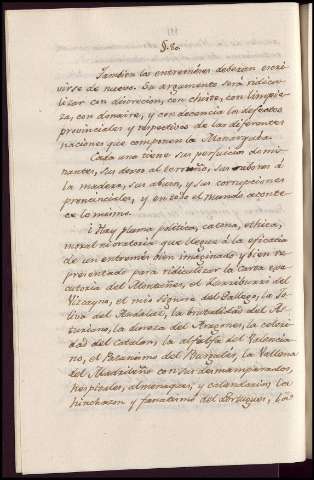 §. 8º.
Tambien los entremeses deberian escri-
virse de nuevo. Su argumento será ridicu-
lizar con discrecion, con chiste, con limpie-
za, con donaire, y con decencia los defectos
provinciales y respectivos de las diferentes
naciones que componen la Monarquía.
Cada una tiene sus perjuicios domi-
nantes, su
madera, sus abusos, y sus corrupciones
provinciales, y en todo el mundo aconte-
ce lo mismo.
¿Hay pluma politica, catona, ethica,
moral ni oratoria que llegue à la eficacia
de un entremés bien imaginado y bien re-
presentado para ridiculizar la Carta exe-
cutoria del Montañes, el
Vizcayno, el mis siguera del Gallego, la
del Andaluz, la brutalidad del As-
turiano, la dureza del Aragones, la
del Catalan, la alfalfa del Valencia-
no, el del Burgalés, la
del Madrileño con sus desamparados,
hospitales, almanaques, y calendarios, la
hinchazon y fanatismo del Portugues, la